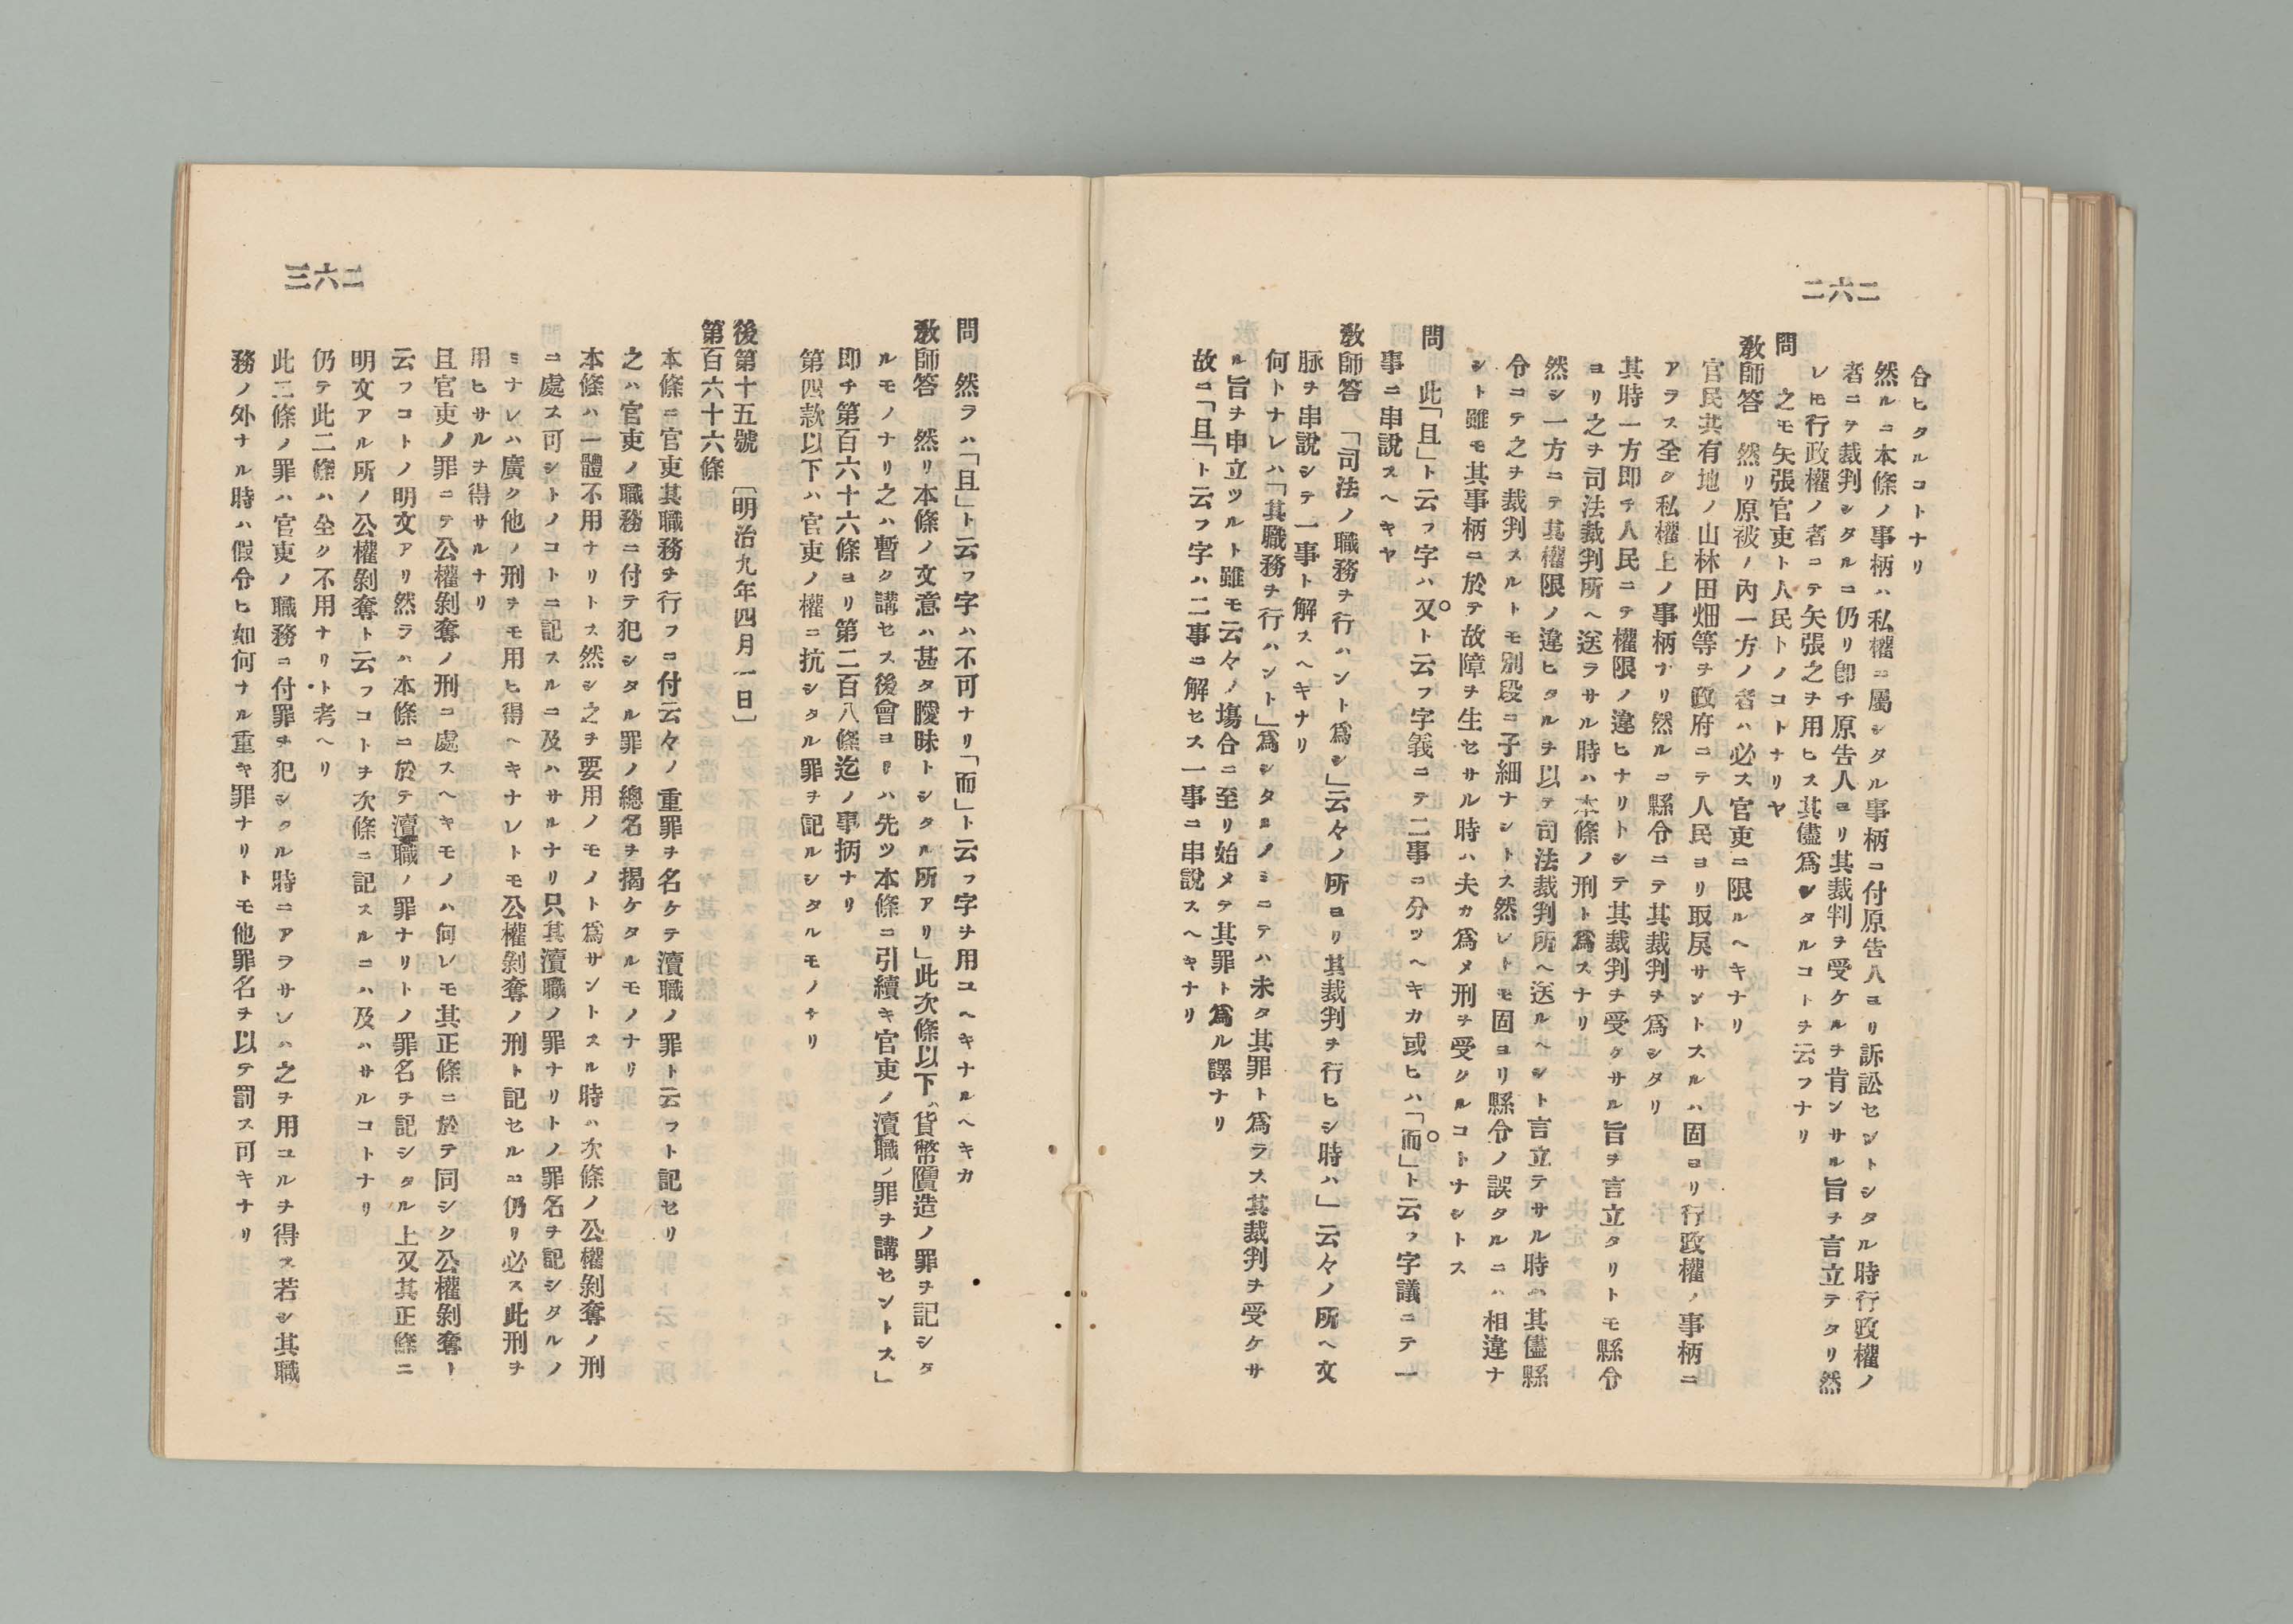 二六二
合ヒタルコトナリ
然ルニ本條ノ事柄ハ私權ニ屬シタル事柄ニ付原告人ヨリ訴訟セントシタル時行政權ノ
者ニテ裁判シタルニ仍リ卽チ原告人ヨリ其裁判ヲ受ケルヲ肯ンサル旨ヲ言立テタリ然
レ𪜈行政權ノ者ニテ矢張之ヲ用ヒス其儘爲シタルコトヲ云フナリ
問　之モ矢張官吏ト人民トノコトナリヤ
敎師答　然リ原被ノ內一方ノ者ハ必ス官吏ニ限ルヘキナリ
官民共有地ノ山林田畑等ヲ政府ニテ人民ヨリ取戾サントスルハ固ヨリ行政權ノ事柄ニ
アラス全ク私權上ノ事柄ナリ然ルニ縣令ニテ其裁判ヲ爲シタリ
其時一方即チ人民ニテ權限ノ違ヒナリトシテ其裁判ヲ受ケサル旨ヲ言立タリトモ縣令
ヨリ之ヲ司法裁判所ヘ送ラサル時ハ本條ノ刑ト爲スナリ
然シ一方ニテ其權限ノ違ヒタルヲ以テ司法裁判所ヘ送ルヘシト言立テサル時ハ其儘縣
令ニテ之ヲ裁判スルトモ別段ニ子細ナシトス然レトモ固ヨリ縣令ノ誤タルニハ相違ナ
シト雖モ其事柄ニ於テ故障ヲ生セサル時ハ夫カ爲メ刑ヲ受クルコトナシトス
問　此「且」ト云フ字ハ又ト云フ字義ニテ二事ニ分ツヘキカ或ヒハ「而」ト云フ字議ニテ一
事ニ串說スヘキヤ
敎師答　「司法ノ職務ヲ行ハント爲シ」云々ノ所ヨリ其裁判ヲ行ヒシ時ハ」云々ノ所ヘ文
脉ヲ串說シテ一事ト解スヘキナリ
何トナレハ「其職務ヲ行ハント」爲シタルノミニテハ未タ其罪ト爲ラス其裁判ヲ受ケサ
ル旨ヲ申立ツルト雖モ云々ノ塲合ニ至リ始メテ其罪ト爲ル譯ナリ
故ニ「且「ト云フ字ハ二事ニ解セス一事ニ串說スヘキナリ
二六三
問　然ラハ「且」ト云フ字ハ不可ナリ「而」ト云フ字ヲ用ユヘキナルヘキカ
敎師答　然リ本條ノ文意ハ甚タ曖昧トシタル所アリ」此次條以下ハ貨幣贋造ノ罪ヲ記シタ
ルモノナリ之ハ暫ク講セス後會ヨリハ先ツ本條ニ引續キ官吏ノ瀆職ノ罪ヲ講セントス」
即チ第百六十六條ヨリ第二百八條迄ノ事柄ナリ
第四款以下ハ官吏ノ權ニ抗シタル罪ヲ記ルシタルモノナリ
後第十五號　〔明治九年四月一日〕
第百六十六條
本條ニ官吏其職務ヲ行フニ付云々ノ重罪ヲ名ケテ瀆職ノ罪ト云フト記セリ
之ハ官吏ノ職務ニ付テ犯シタル罪ノ總名ヲ揭ケタルモノナリ
本條ハ一體不用ナリトス然シ之ヲ要用ノモノト爲サントスル時ハ次條ノ公權剝奪ノ刑
ニ處ス可シトノコトニ記スルニ及ハサルナリ只其瀆職ノ罪ナリトノ罪名ヲ記シタルノ
ミナレハ廣ク他ノ刑ヲモ用ヒ得ヘキナレトモ公權剝奪ノ刑ト記セルニ仍リ必ス此刑ヲ
用ヒサルヲ得サルナリ
且官吏ノ罪ニテ公權剝奪ノ刑ニ處スヘキモノハ何レモ其正條ニ於テ同シク公權剝奪ト
云フコトノ明文アリ然ラハ本條ニ於テ瀆職ノ罪ナリトノ罪名ヲ記シタル上又其正條ニ
明文アル所ノ公權剝奪ト云フコトヲ次條ニ記スルニハ及ハサルコトナリ
仍テ此二條ハ全ク不用ナリト考ヘリ
此二條ノ罪ハ官吏ノ職務ニ付罪ヲ犯シタル時ニアラサレハ之ヲ用ユルヲ得ス若シ其職
務ノ外ナル時ハ假令ヒ如何ナル重キ罪ナリトモ他罪名ヲ以テ罰ス可キナリ